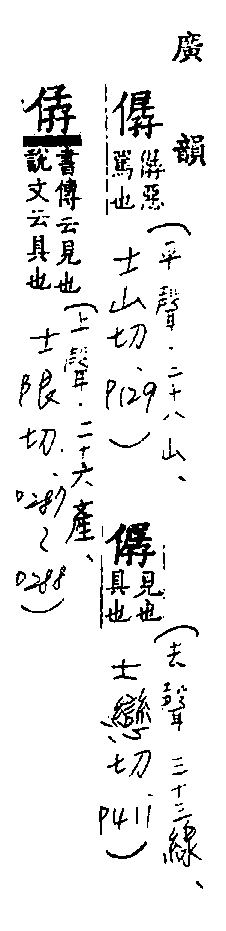 廣韻
僝
僝惡
罵也
(平聲．二十八山、
士山切．P129)
僝
見也
具也
(去聲 三十三線、
士戀切．P411)
僝
書傳云見也
說文云具也
(上聲．二十六產、
士限切．P287~
P288)